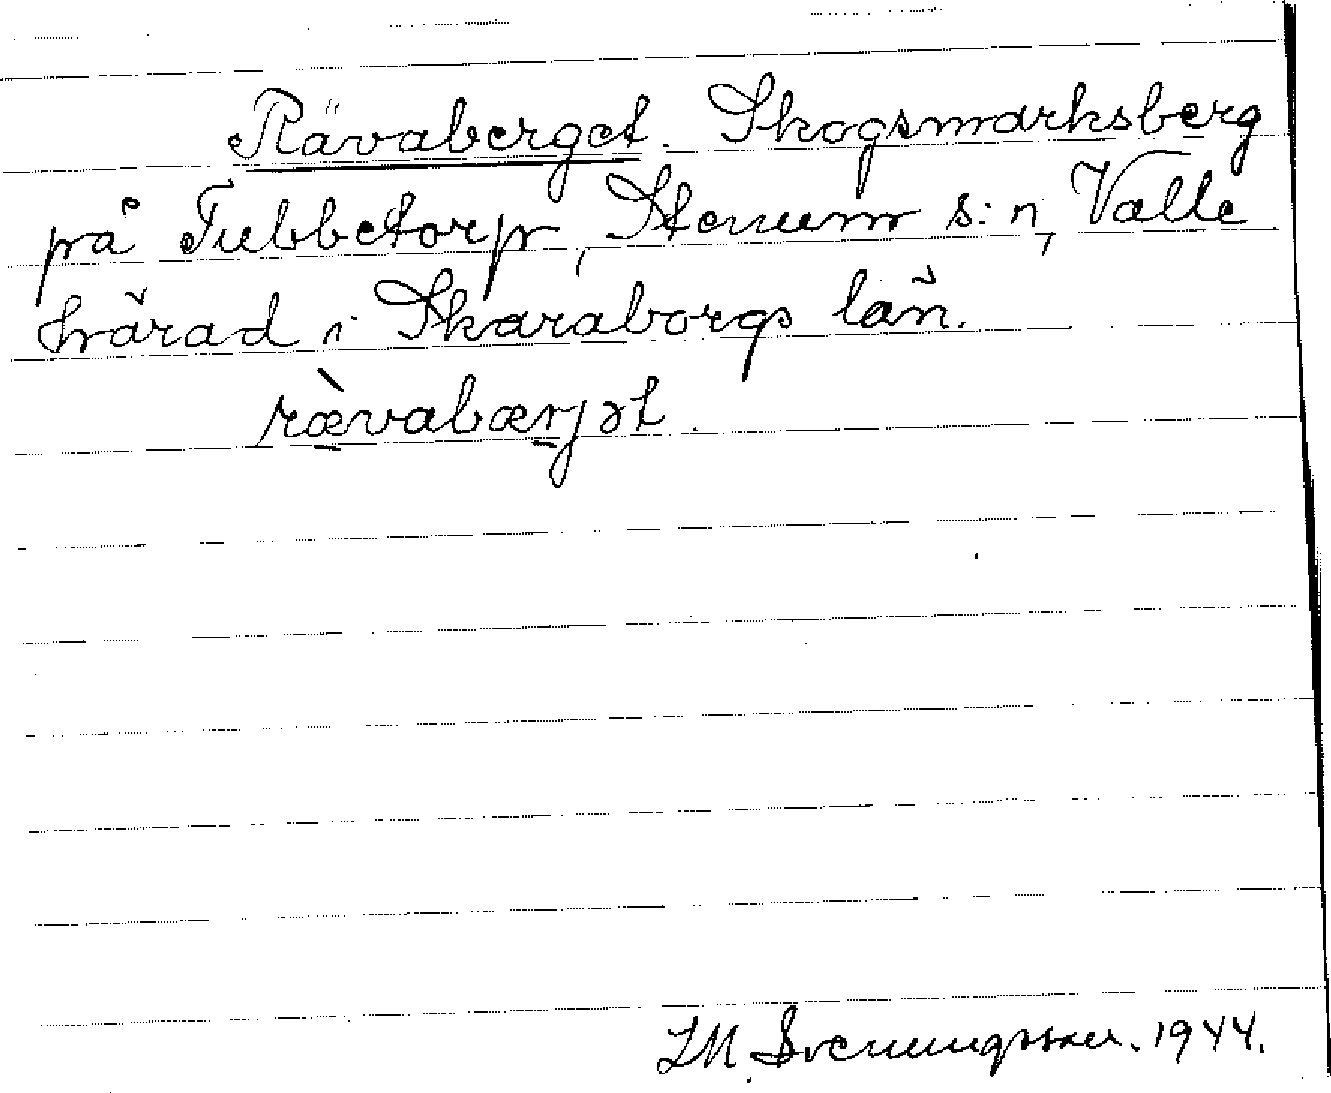 Rävaberget. Skogsmarksberg
på Tubbetorp, Stenum s:n, Valle
härad i Skaraborgs län.
rævabærjət.
I.M. Svenungsson. 1944.